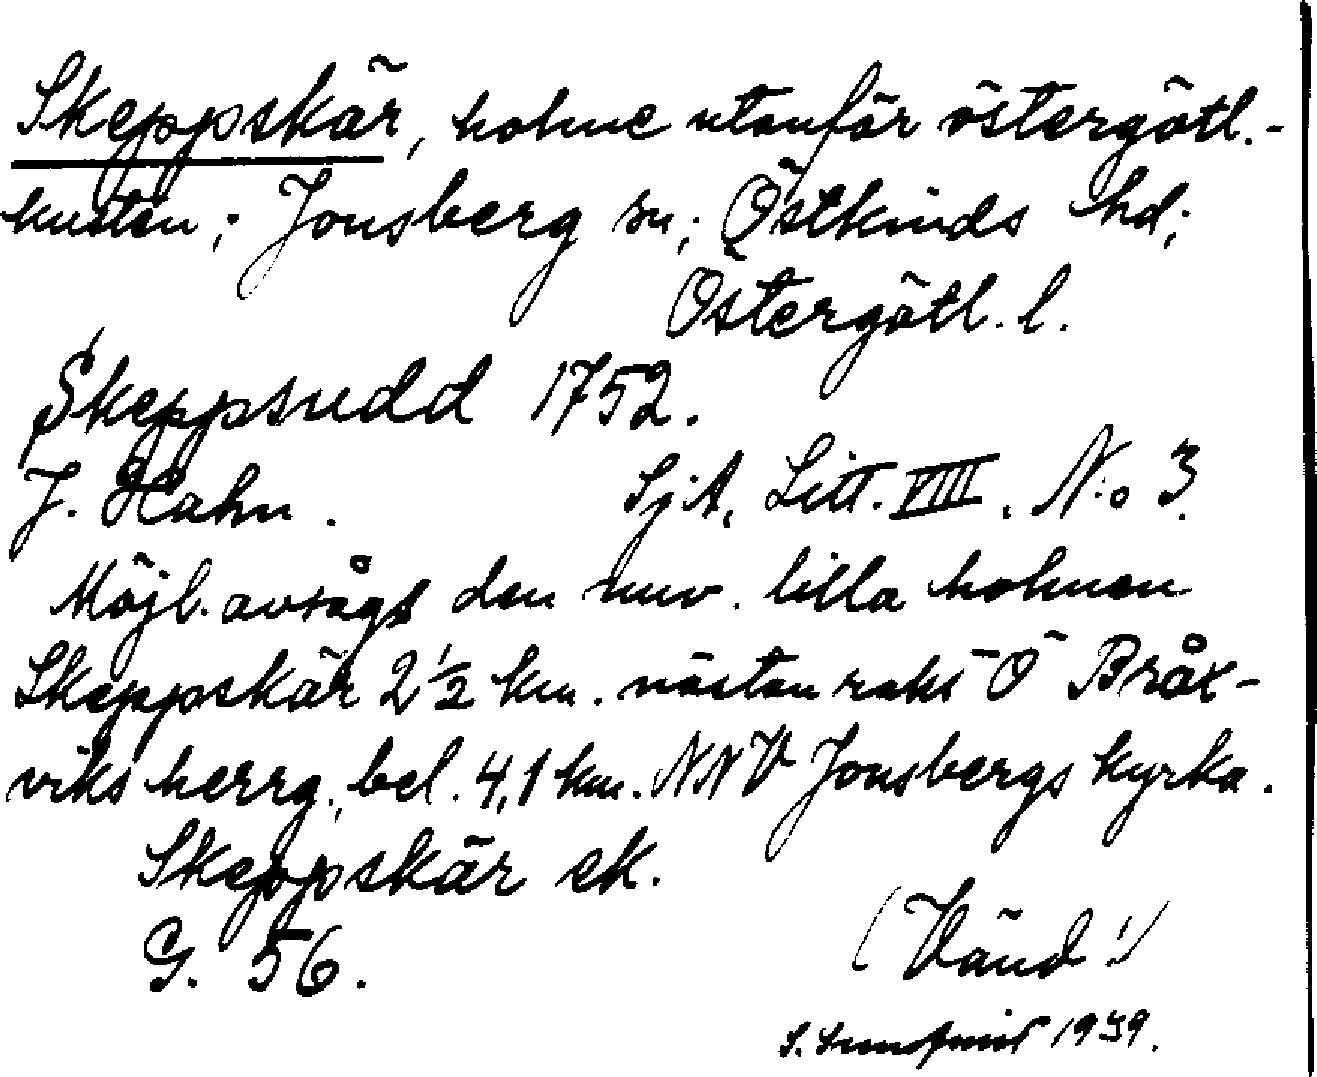 Skeppskär, holme utanför östergötl.-
kusten; Jonsberg sn; Östkinds hd;
Östergötl. l.
Skeppsudd 1752.
J. Hahn. SjA, Litt. VIII. N:o 3.
Möjl. avsågs den nuv. lilla holmen
Skeppskär 2 1/2 km. nästan rakt Ö Bråx-
viks herrg., bel. 4,1 km. NNV Jonsbergs kyrka.
Skeppskär ek.
G. 56.
(Vänd!)
S. 1939.